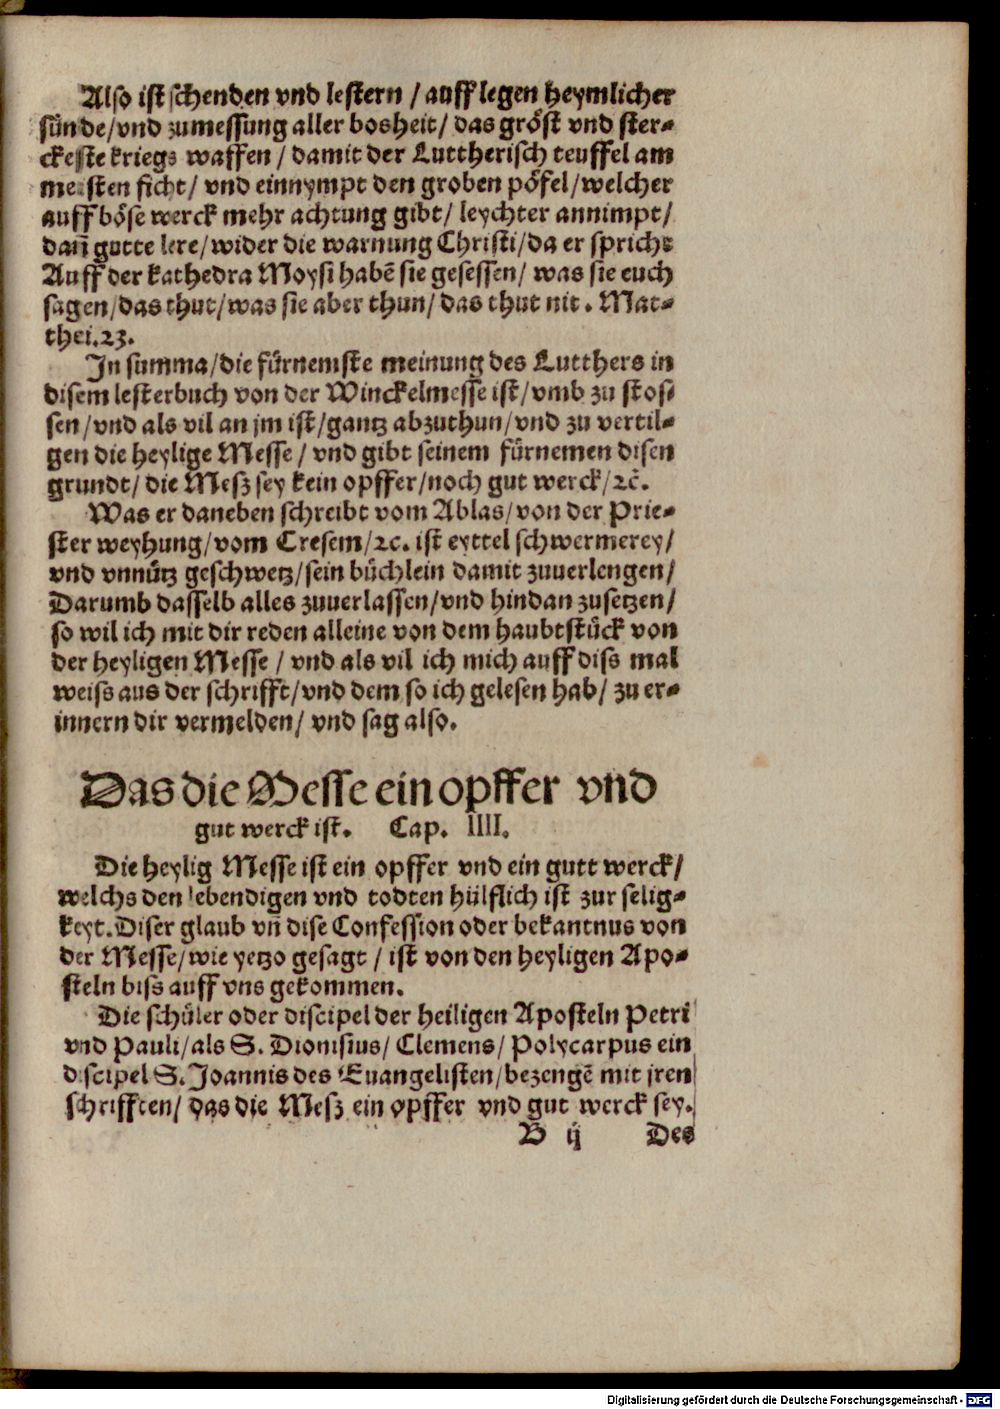 Also ist schenden vnd lestern / auff legen heymlicher
sünde/vnd zumessung aller bosheit/ das gröst vnd ster-
ckeste kriegs waffen / damit der Luttherisch teuffel am
meisten ficht/ vnd einnympt den groben pöfel/welcher
auff böse werck mehr achtung gibt/ leychter annimpt/
dañ gutte lere/wider die warnung Christi/da er spricht
Auff der kathedra Moysi habẽ sie gesessen/ was sie euch
sagen/das thut/was sie aber thun/ das thut nit. Mat-
thei.23.
In summa/die fürnemste meinung des Lutthers in
disem lesterbuch von der Winckelmesse ist/vmb zu stos-
sen/vnd als vil an jm ist/gantz abzuthun/vnd zu vertil-
gen die heylige Messe / vnd gibt seinem fürnemen disen
grundt/ die Mesz sey kein opffer/noch gut werck/ꝛc̃.
Was er daneben schreibt vom Ablas/von der Prie-
ster weyhung/vom Cresem/ꝛc. ist eyttel schwermerey/
vnd vnnütz geschwetz/sein büchlein damit zuuerlengen/
Darumb dasselb alles zuuerlassen/vnd hindan zusetzen/
so wil ich mit dir reden alleine von dem haubtstück von
der heyligen Messe / vnd als vil ich mich auff diss mal
weiss aus der schrifft/vnd dem so ich gelesen hab/ zu er-
innern dir vermelden/ vnd sag also.
Das die Messe ein opffer vnd
gut werck ist. Cap. IIII.
Die heylig Messe ist ein opffer vnd ein gutt werck/
welchs den lebendigen vnd todten hülflich ist zur selig-
keyt. Diser glaub vñ dise Confession oder bekantnus von
der Messe/wie yetzo gesagt / ist von den heyligen Apo-
steln biss auff vns gekommen.
Die schüler oder discipel der heiligen Aposteln Petri
vnd Pauli/als S. Dionisius/ Clemens/ Polycarpus ein
discipel S. Joannis des Euangelisten/bezengẽ mit jren
schrifften/ das die Mesz ein opffer vnd gut werck sey.
B ij Des
Digitalisierung gefördert durch die Deutsche Forschungsgemeinschaft - DFG